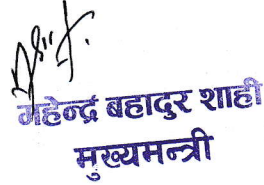 महेन्द्र बहादुर शाही
मुख्यमन्त्री